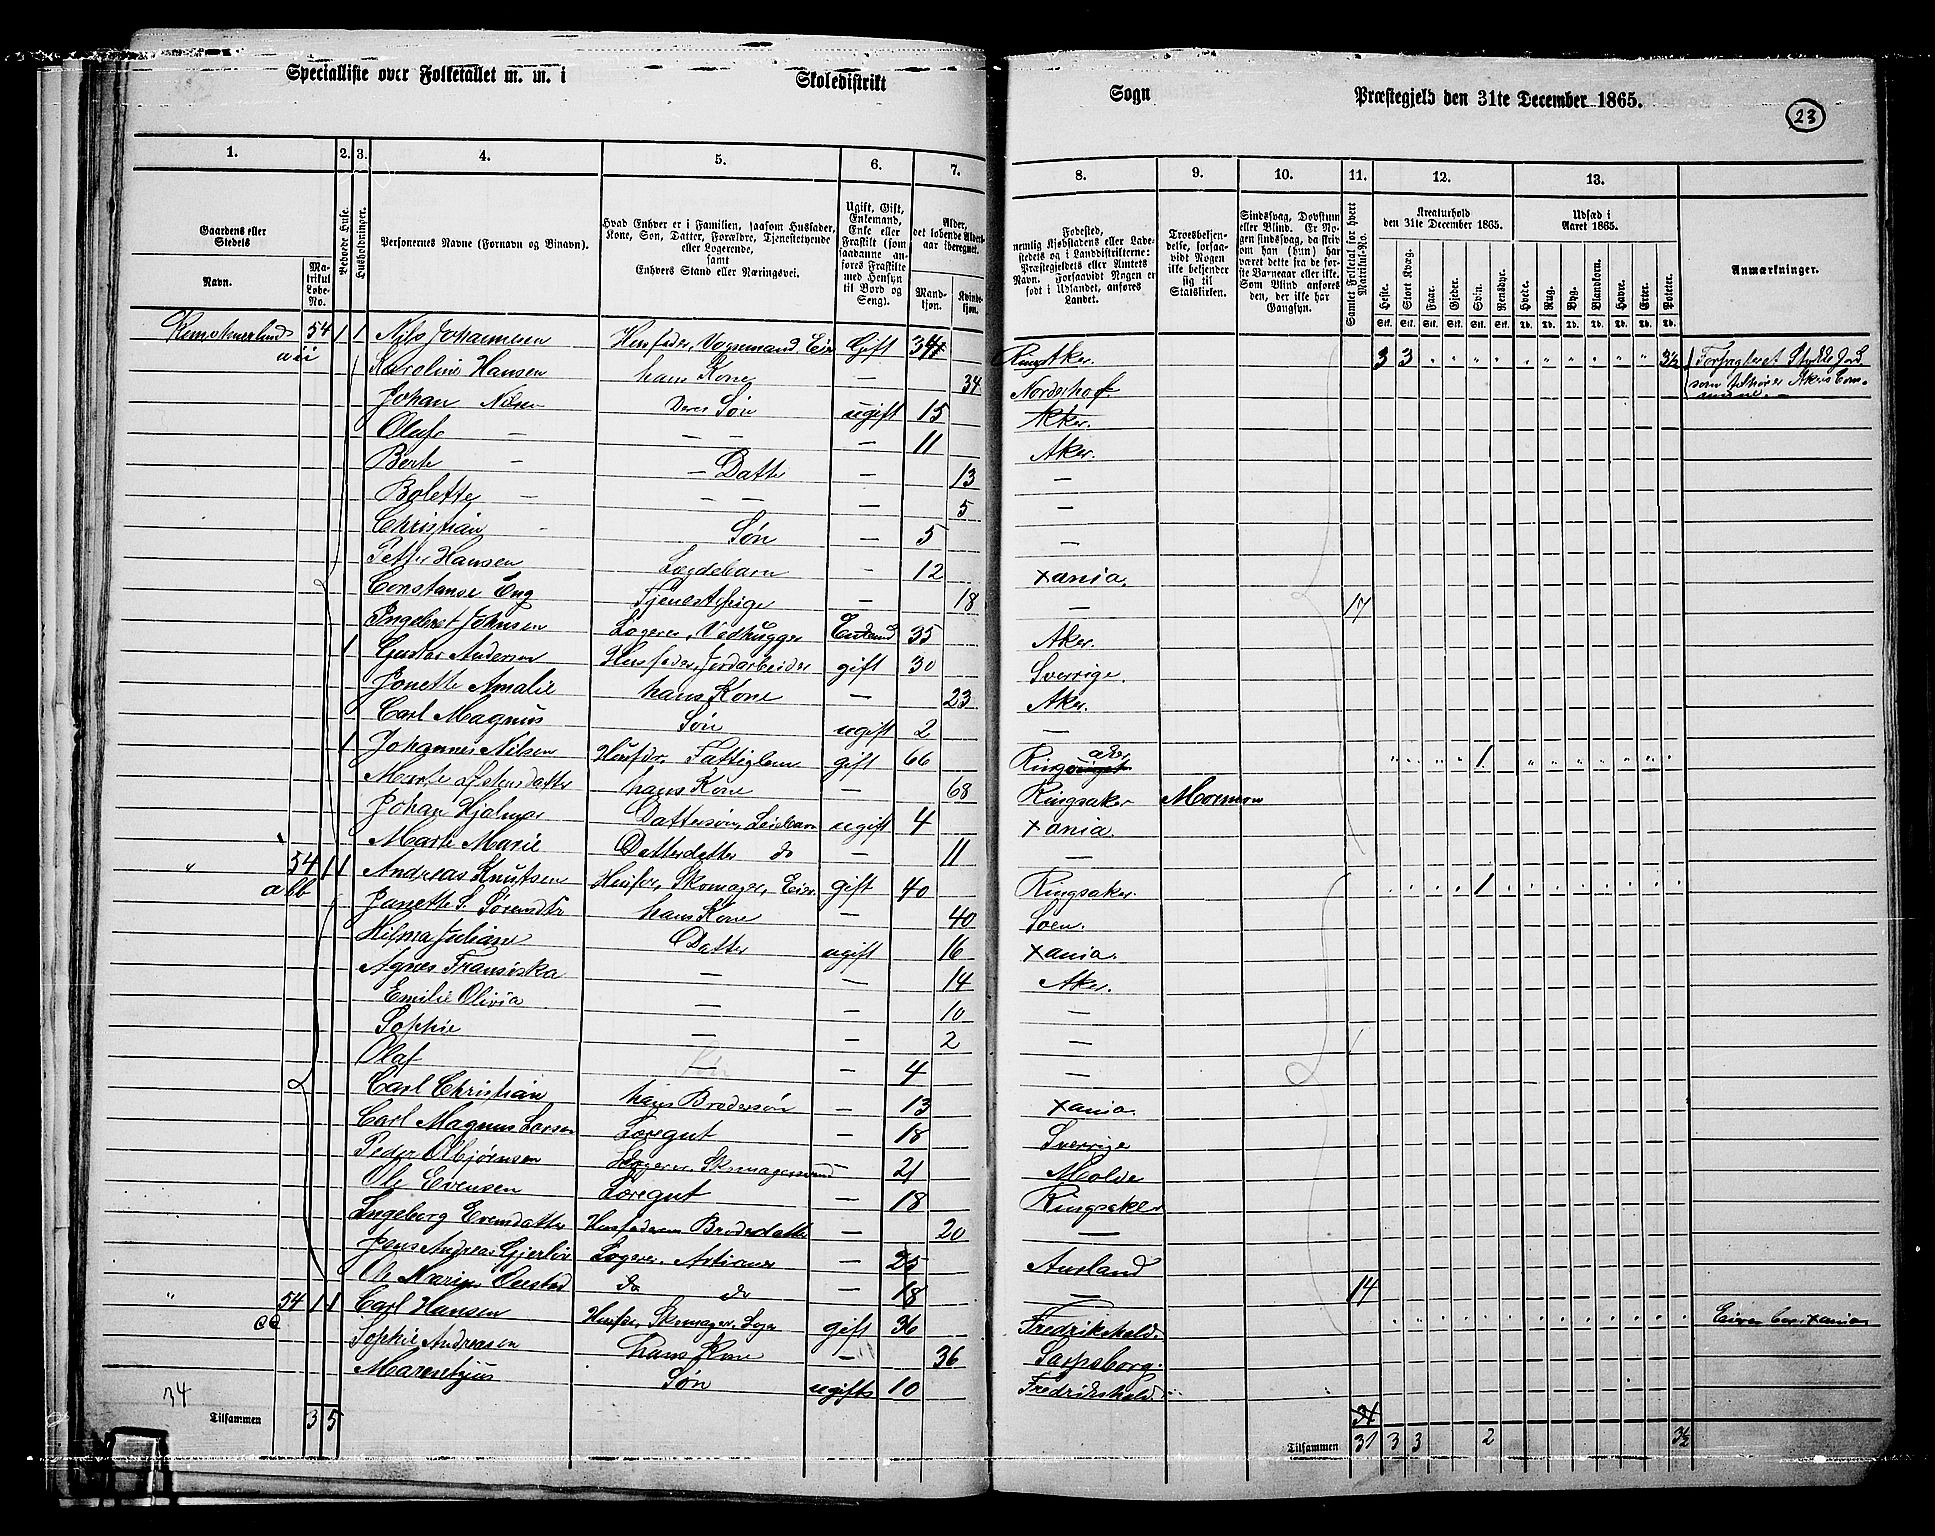 Specialliste over Folketallet m. m. i Skoledistrikt Sogn Præstegjeld den 31te December 1865.
23
1. 2. 3. 4. 5. 6. 7. 8. 9. 10. 11. 12. 13.
Gaardens eller Stedets
Navn.
Matrikul Løbe-No.
Bebodde Huse.
Husholdninger.
Personernes Navne (Fornavn og Binavn).
Hvad Enhver er i Familien, saasom Husfader, Kone, Søn, Datter, Forældre, Tjenestetyende eller Logerende, samt Enhvers Stand eller Næringsvei.
Ugift, Gift, Enkemand, Enke eller Fraskilt (som saadanne anføres Fraskilte med Hensyn til Bord og Seng).
Alder, det løbende Alders-aar iberegnet.
Mandkjøn. Kvindekjøn.
Fødested, nemlig Kjøbstadens eller Ladestedets og i Landdistrikterne: Præstegjeldets eller Amtets Navn. Forsaavidt Nogen er født i Udlandet, anføres Landet.
Troesbekjendelse, forsaavidt Nogen ikke bekjender sig til Statskirken.
Sindssvag, Døvstum eller Blind. Er Nogen sindssvag, da skrives om han (hun) har været dette fra de første Barneaar eller ikke. Som Blind anføres den, der ikke har Gangsyn.
Samlet Folketal for hvert Matrikul-No.
Kreaturhold den 31te December 1865.
Heste. Stort Kvæg. Faar. Gjeder. Svin. Rensdyr.
Udsæd i Aaret 1865.
Hvede. Rug. Byg. Blandkorn. Havre. Erter. Poteter.
Stk. Stk. Stk. Stk. Stk. Stk. Td. Td. Td. Td. Td. Td. Td.
Anmærkninger.
54 1 1 Nils Johannesen Husfader, Vognmand, Eier Gift 34 Ringsaker. 3 3 3½ Forpagteret Stykke Jord
Karoline Hansen hans Kone — 34 Norderhof som tilhører Akers Com-
Johan Nilsen Deres Søn ugift 15 Aker. mune. —
Oluf — — — — 11 Aker.
Berte — — Datter — 13 —
Bolette — — — — 5 —
Christian - Søn — 5 —
Petter Hansen Lægdebarn — 12 Xania.
Constanse Eng Tjenestepige — 18 — 17
Ingebret Johnsen Logerer, Vedhugger Enkemd 35 Aker.
1 Gustav Andersen Husfader, Jordarbeider gift 30 Sverrige.
Jonette Amalie hans Kone — 23 Aker.
Carl Magnus Søn ugift 2 —
1 Johannes Nilsen Husfdr. Fattiglem gift 66 Ringsaker 1
Marte hans Kone — 68 Ringsaker Mormon
Johan Hjalmar Dattersøn, Leiebarn ugift 4 Xania.
Marte Marie Datterdatter do — 11 —
" 54 1 1 Andreas Knutsen Husfdr, Skomager, Eier. gift 40 Ringsaker. 1
abb Janette S. Sørensdtr hans Kone — 40 Soen.
Hilma Juliane Datter ugift 16 Xania.
Agnes Fransiska — — 14 Aker.
Emilie Olivia — — 10 —
Sophie — — 2 —
Olaf — — 4 —
Carl Christian hans Brodersøn — 13 Xania.
Carl Magnus Larsen Læregut — 18 Sverrige
Peder Olbjørnsen Logerer, Skomagersvend — 21 Molde
Ole Evensen Læregut — 18 Ringsaker
Ingeborg Evensdatter Husfaderens Broderdatter — 20 —
Jens Andreas Gjerløv Logerer, — 25 Aurland
Ole do do — 18 — 14
" 54 1 1 Carl Hansen Husfdr, Skomager, Loger gift 36 Fredrikshald. Eieren bor i Xania
Sophie Andreasen hans Kone — 36 Sarpsborg.
Søn ugift 10 Fredrikshald.
34
Tilsammen 3 5
31
Tilsammen 31 3 3 2 3½